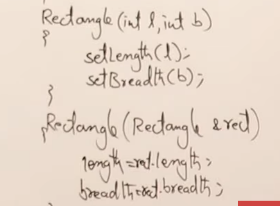 Rectangle(int l,int b)
{
setLength(l);
setBreadth(b);
}
Rectangle(Rectangle &rect)
{
length=rect.length;
breadth=rect.breadth;